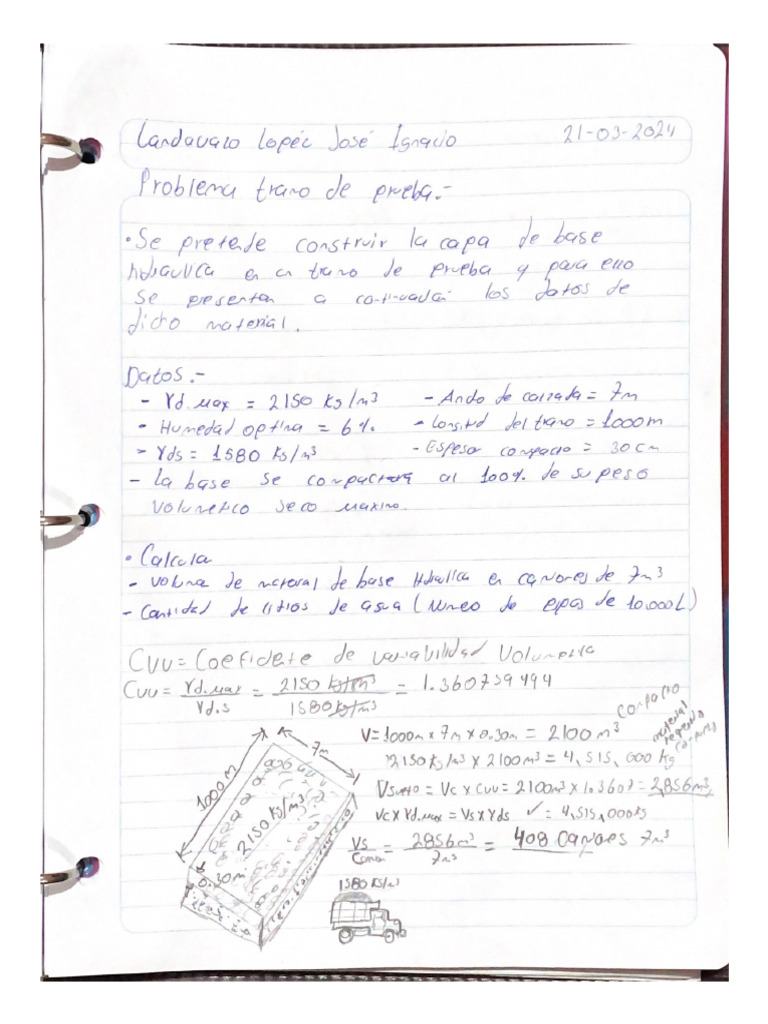 Landavazo Lopéz José Ignacio 21-03-2024
Problema tramo de prueba.-
• Se pretende construir la capa de base
hidraulica en un tramo de prueba y para ello
se presentan a continuación los datos de
dicho material.
Datos.-
- γd.max = 2150 Kg/m³ - Ancho de corzada = 7m
- Humedad optima = 6% - Longitud del tramo = 1000m
- γds = 1580 Kg/m³ - Espesor compacto = 30 cm
- La base se compactará al 100% de su peso
volumetrico seco maximo.
• Calcula
- Volumen de material de base Hidraulica en camiones de 7m³
- Cantidad de litros de agua (Numero de pipas de 10,000L)
Cvv = Coeficiente de variabilidad Volumetrica
Cvv = γd.max / γd.s = 2150 kg/m³ / 1580 kg/m³ = 1.360759494
V = 1000m x 7m x 0.30m = 2100 m³ compacto
material requerido
2150 kg/m³ x 2100m³ = 4,515,000 kg
Vsuelto = Vc x Cvv = 2100m³ x 1.3607 = 2,856m³
Vc x γd.max = Vs x γds ✓ = 4,515,000kg
Vs / Camion = 2856m³ / 7m³ = 408 Camiones 7m³
7m
1000m
2150 Kg/m³
0.30m
1580 KG/m³